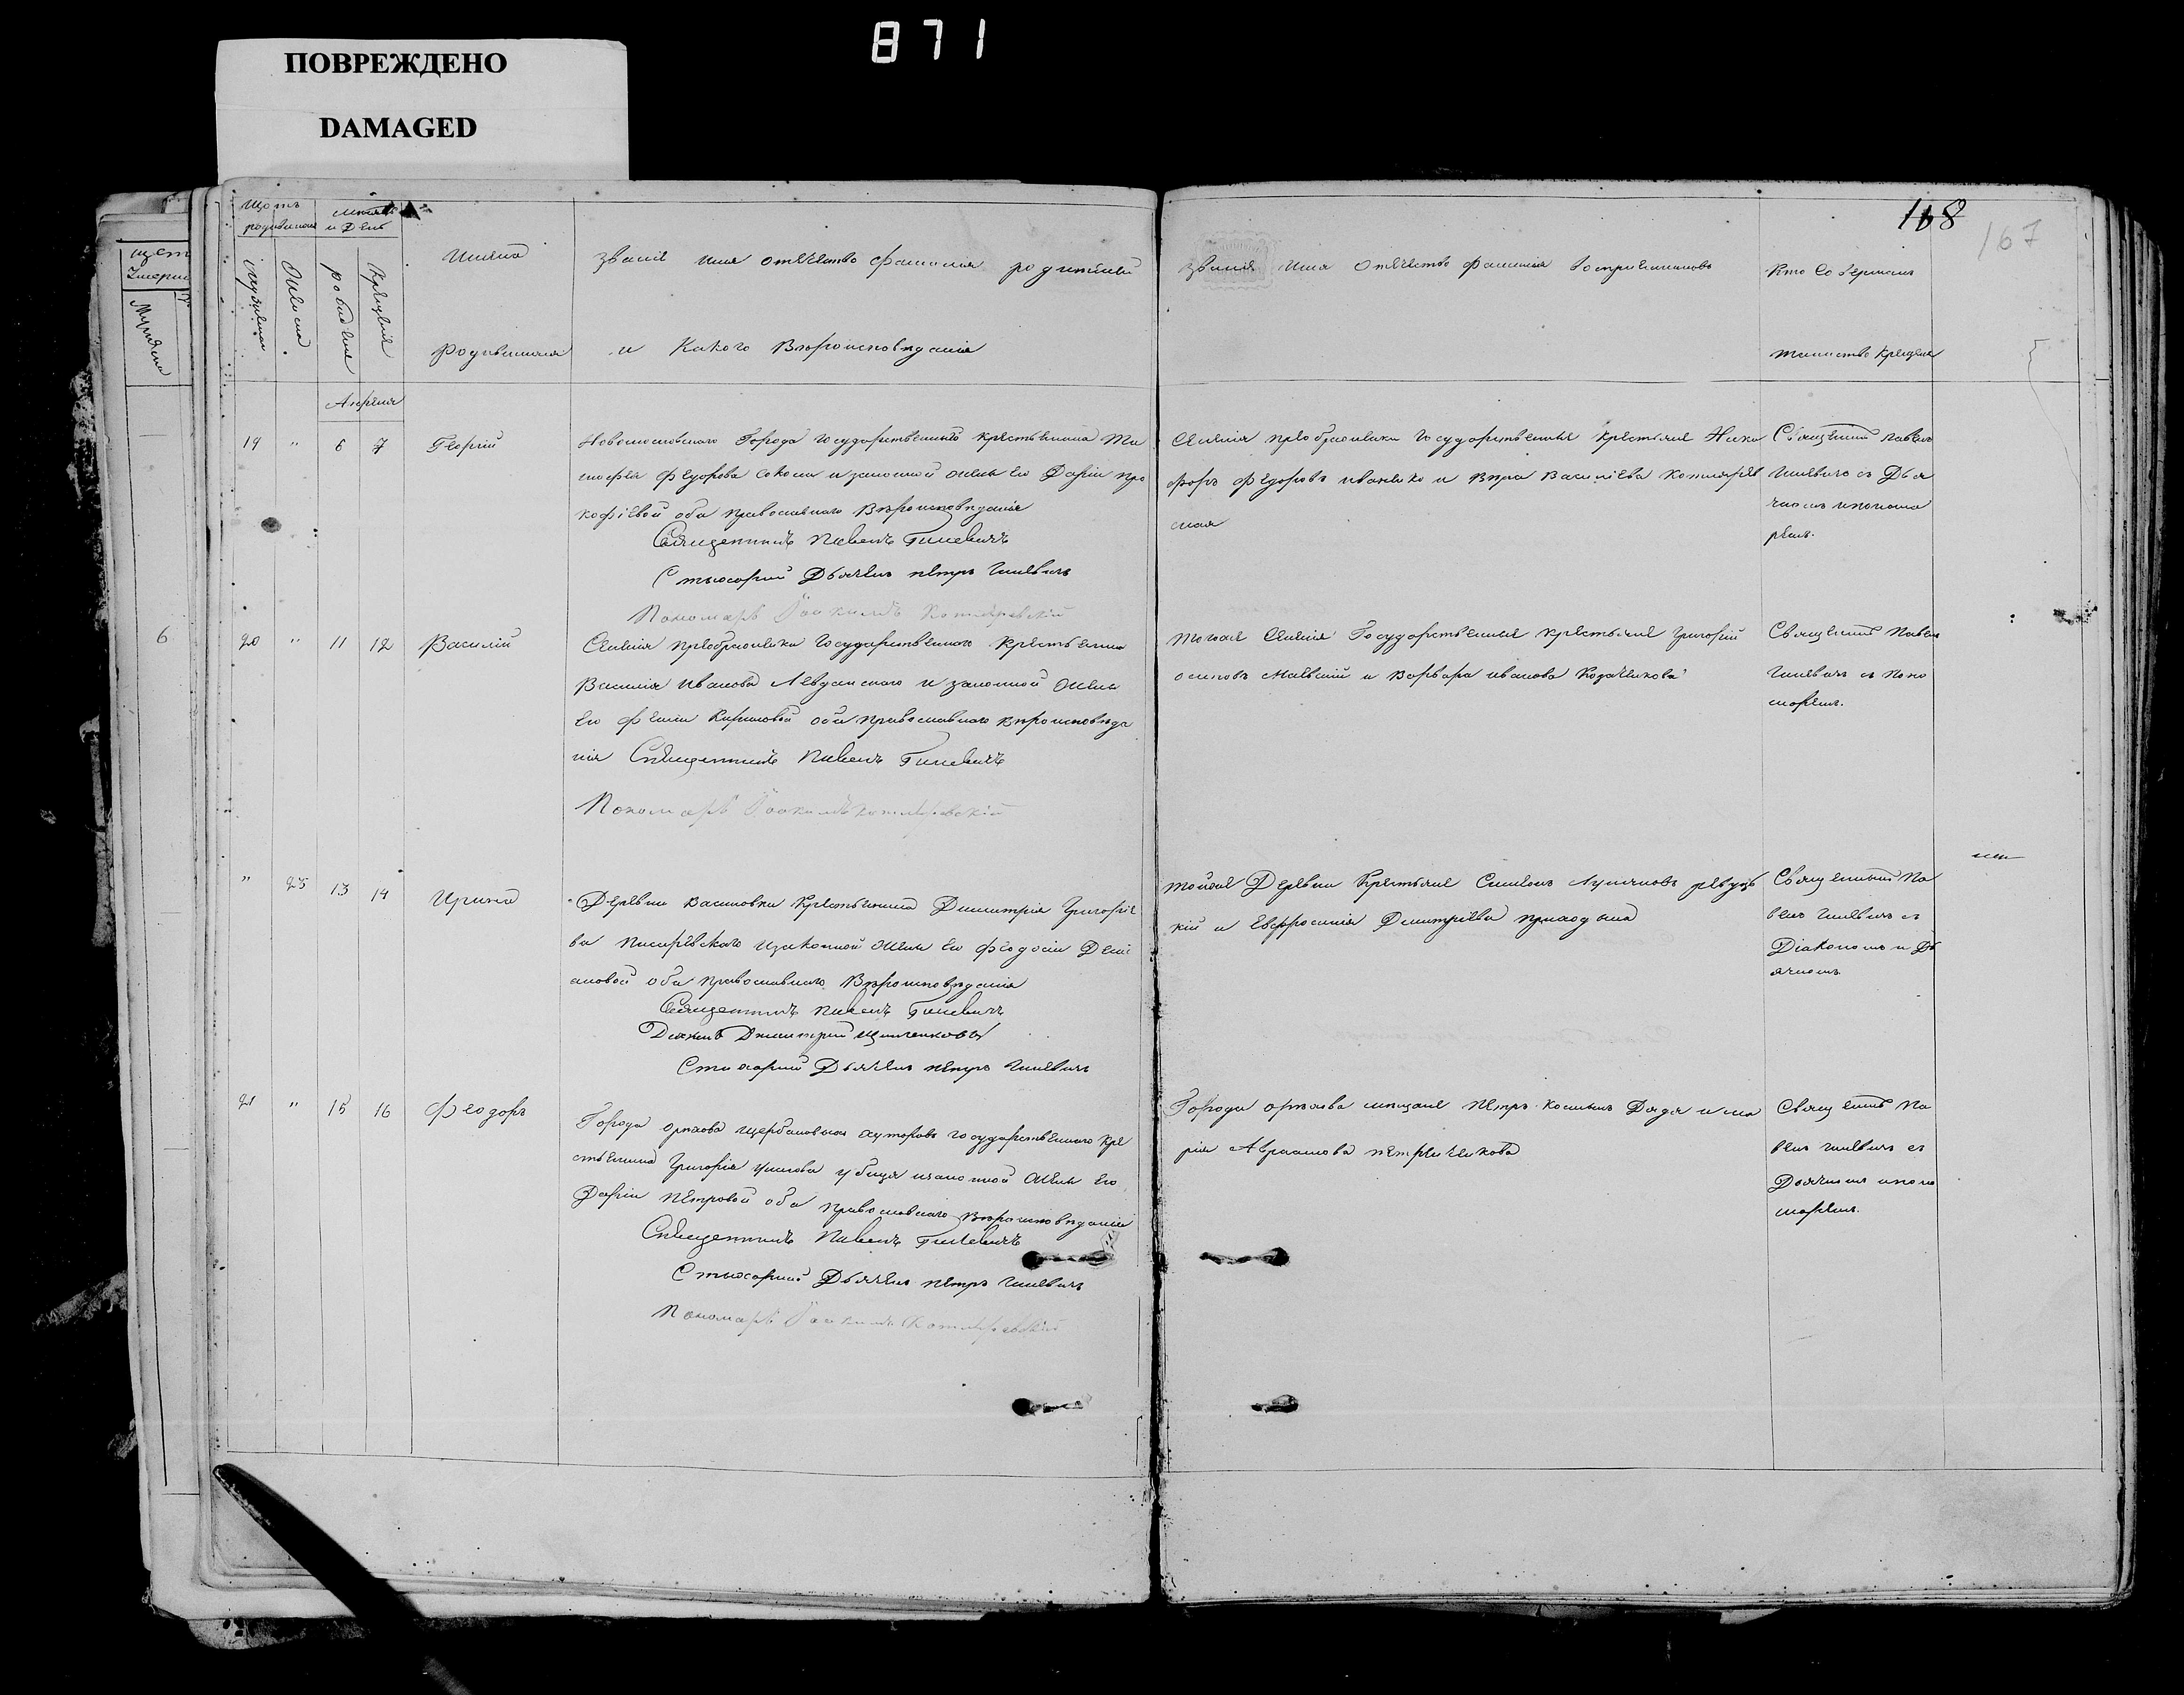 871
ПОВРЕЖДЕНО
DAMAGED
168
167
Щотъ родившихся
мѣсяцъ и День
мужеска
Женска
рождения
Крещения
Имяна
Родившихся
Званіе имя отечество фамилия родителей
и Какого Вѣроисповѣданія
Звания имя отечество фамилия восприемниковъ
Кто Совершалъ
таинство Крещения
Апреля
19 " 6 7 Георгий
Новомосковского Города государственного крестьянина Ти
мофея Федорова Сокола и законной жены его Дарьи Про
кофіевой оба православного Вѣроисповѣданія
Священникъ Павелъ Гилевичъ
Стихорный Дьячекъ петръ Гилевичъ
Пономарь Іоакимъ Котляревскій
Селения преображенки государственные крестьяне Ники
форъ федоровъ иваненко и Вѣра Василіева Котлярев
ская
Священникъ павелъ
Гилевичъ съ Дья
чкомъ и понома
ремъ.
6
20 " 11 12 Василий
Селения преображенки государственного Крестьянина
Василия иванова Левданского и законной жены
его фении Кириловой оба православного вѣроисповѣда
ния Священникъ Павелъ Гилевичъ
Пономарь Іоакимъ Котляревскій
тогоже Селения Государственные крестьяне григорий
осиповъ Маевский и Варвара иванова Козаченкова
Священникъ Павелъ
Гилевичъ съ Поно
марем.
" 25 13 14 Ирина
Деревни Василовки Крестьянина Димитрія Григорие
ва Писаревского и законной жены его феодосии Деми
ановой оба православного Вѣроисповѣдания
Священникъ Павелъ Гилевичъ
Диаконъ Димитрий
Стихорный Дьячекъ петръ Гилевичъ
тойже Деревни Крестьяне Симеонъ Лукяновъ ревуц
кій и Евфросинія Димитріева приходкина
Священникъ Па
велъ Гилевичъ съ
Діакономъ и Дь
ячкомъ
21 " 15 16 Феодоръ
Города орехова щербаковских хуторовъ государственного кре
стьянина Григория и законной жены его
Дарии Петровой оба православного Вѣроисповѣдания
Священникъ Павелъ Гилевичъ
Стихорный Дьячекъ петръ Гилевичъ
Пономарь Іоакимъ Котляревскій
Города орехова мещане Петръ Косминъ Дядя и ма
рия Авраамова петриченкова
Священникъ Па
велъ гилевичъ съ
Дьячкомъ и поно
марем.